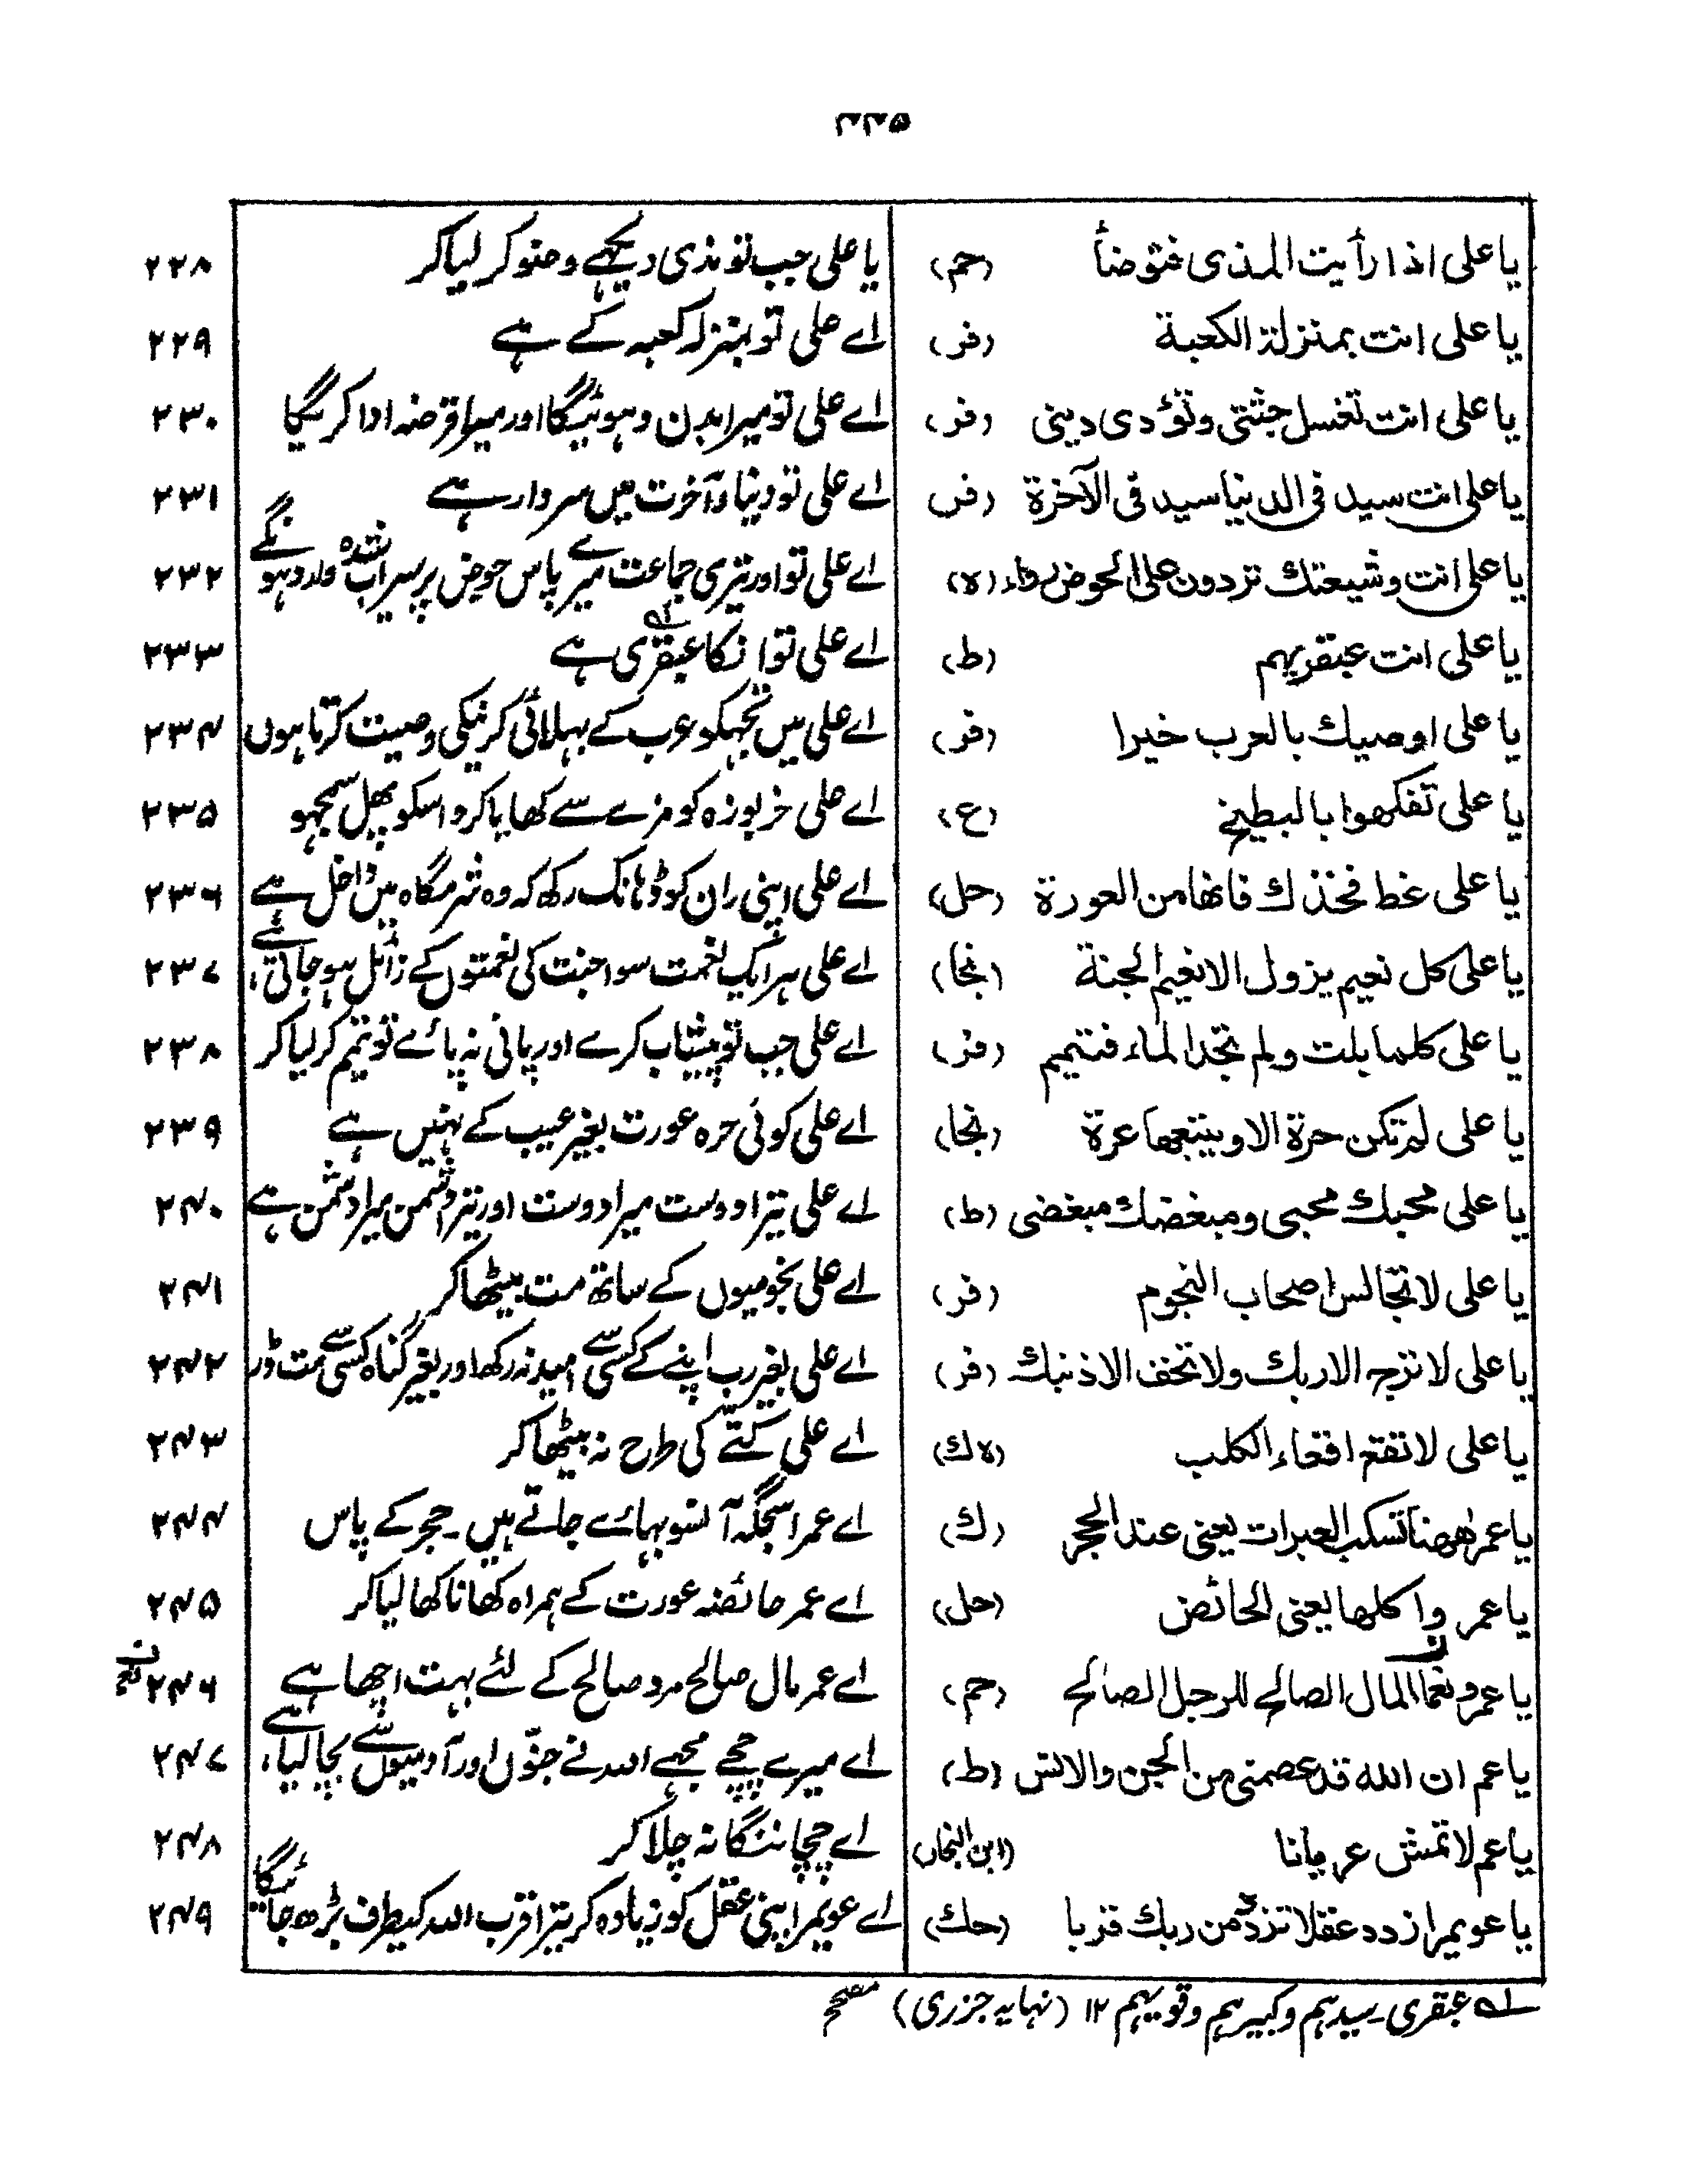 ۵۲۲
یا علی اذا رأیت المذی فتوضأ (حم) یا علی جب تو مذی دیکھے وضو کر لیا کر ۲۲۸
یا علی انت بمنزلة الکعبة (فر) اے علی تو بمنزلہ کعبہ کے ہے ۲۲۹
یا علی انت تغسل جثتی وتؤدی دینی (فر) اے علی تو میرا بدن دہوئیگا اور میرا قرضہ ادا کریگا ۲۳۰
یا علی انت سید فی الدنیا سید فی الآخرة (فر) اے علی تو دنیا وآخرت میں سردار ہے ۲۳۱
یا علی انت وشیعتك تردون علی الحوض رواء (ہ) اے علی تو اور تیری جماعت میرے پاس حوض پر سیراب شدہ وارد ہونگے ۲۳۲
یا علی انت عبقریہم (ط) اے علی تو انکا عبقری ہے ۲۳۳
یا علی اوصیك بالعرب خیرا (فر) اے علی میں تجہکو عرب کے بہلائی کرنیکی وصیت کرتا ہوں ۲۳۴
یا علی تفکهوا بالبطیخ (ع) اے علی خربوزہ کو مزے سے کھایا کرو اسکو پھل سمجہو ۲۳۵
یا علی غط فخذك فانها من العورة (حل) اے علی اپنی ران کو ڈہانک رکھ کہ وہ شرمگاہ میں داخل ہے ۲۳۶
یا علی کل نعیم یزول الا نعیم الجنة (نجا) اے علی ہر ایک نعمت سوا جنت کی نعمتوں کے زائل ہو جاتی ہے ۲۳۷
یا علی کلما بلت ولم تجد الماء فتیمم (فر) اے علی جب تو پیشاب کرے اور پانی نہ پائے تو تیمم کر لیا کر ۲۳۸
یا علی لم تکن حرة الا ویتبعها عرة (نجا) اے علی کوئی حرہ عورت بغیر عیب کے نہیں ہے ۲۳۹
یا علی محبك محبی ومبغضك مبغضی (ط) اے علی تیرا دوست میرا دوست اور تیرا دشمن میرا دشمن ہے ۲۴۰
یا علی لا تجالس اصحاب النجوم (فر) اے علی نجومیوں کے ساتھ مت بیٹھا کر ۲۴۱
یا علی لا ترج الا ربك ولا تخف الا ذنبك (فر) اے علی بغیر رب اپنے کے کسی سے امید نہ رکھ اور بغیر گناہ کسی سے مت ڈر ۲۴۲
یا علی لا تقع اقعاء الکلب (ہ ك) اے علی کتے کی طرح نہ بیٹھا کر ۲۴۳
یا عمر ههنا تسکب العبرات یعنی عند الحجر (ك) اے عمر اسجگہ آنسو بہائے جاتے ہیں۔ حجر کے پاس ۲۴۴
یا عمر واکلها یعنی الحائض (حل) اے عمر حائضہ عورت کے ہمراہ کھانا کھا لیا کر ۲۴۵
یا عمرو نعما المال الصالح للرجل الصالح (حم) اے عمر مال صالح مرد صالح کے لئے بہت اچھا ہے ۲۴۶
یا عم ان الله قد عصمنی من الجن والانس (ط) اے میرے چچے مجہے اللہ نے جنوں اور آدمیوں سے بچا لیا ہے ۲۴۷
یا عم لا تمش عریانا (ابن النجار) اے چچا ننگا نہ چلا کر ۲۴۸
یا عویمر ازدد عقلا تزدد من ربك قربا (حك) اے عویمر اپنی عقل کو زیادہ کر تیرا قرب اللہ کیطرف بڑھ جائیگا ۲۴۹
لہ عبقری۔ سیدہم وکبیرہم وقویہم ۱۲ (نہایہ جزری) مصحح